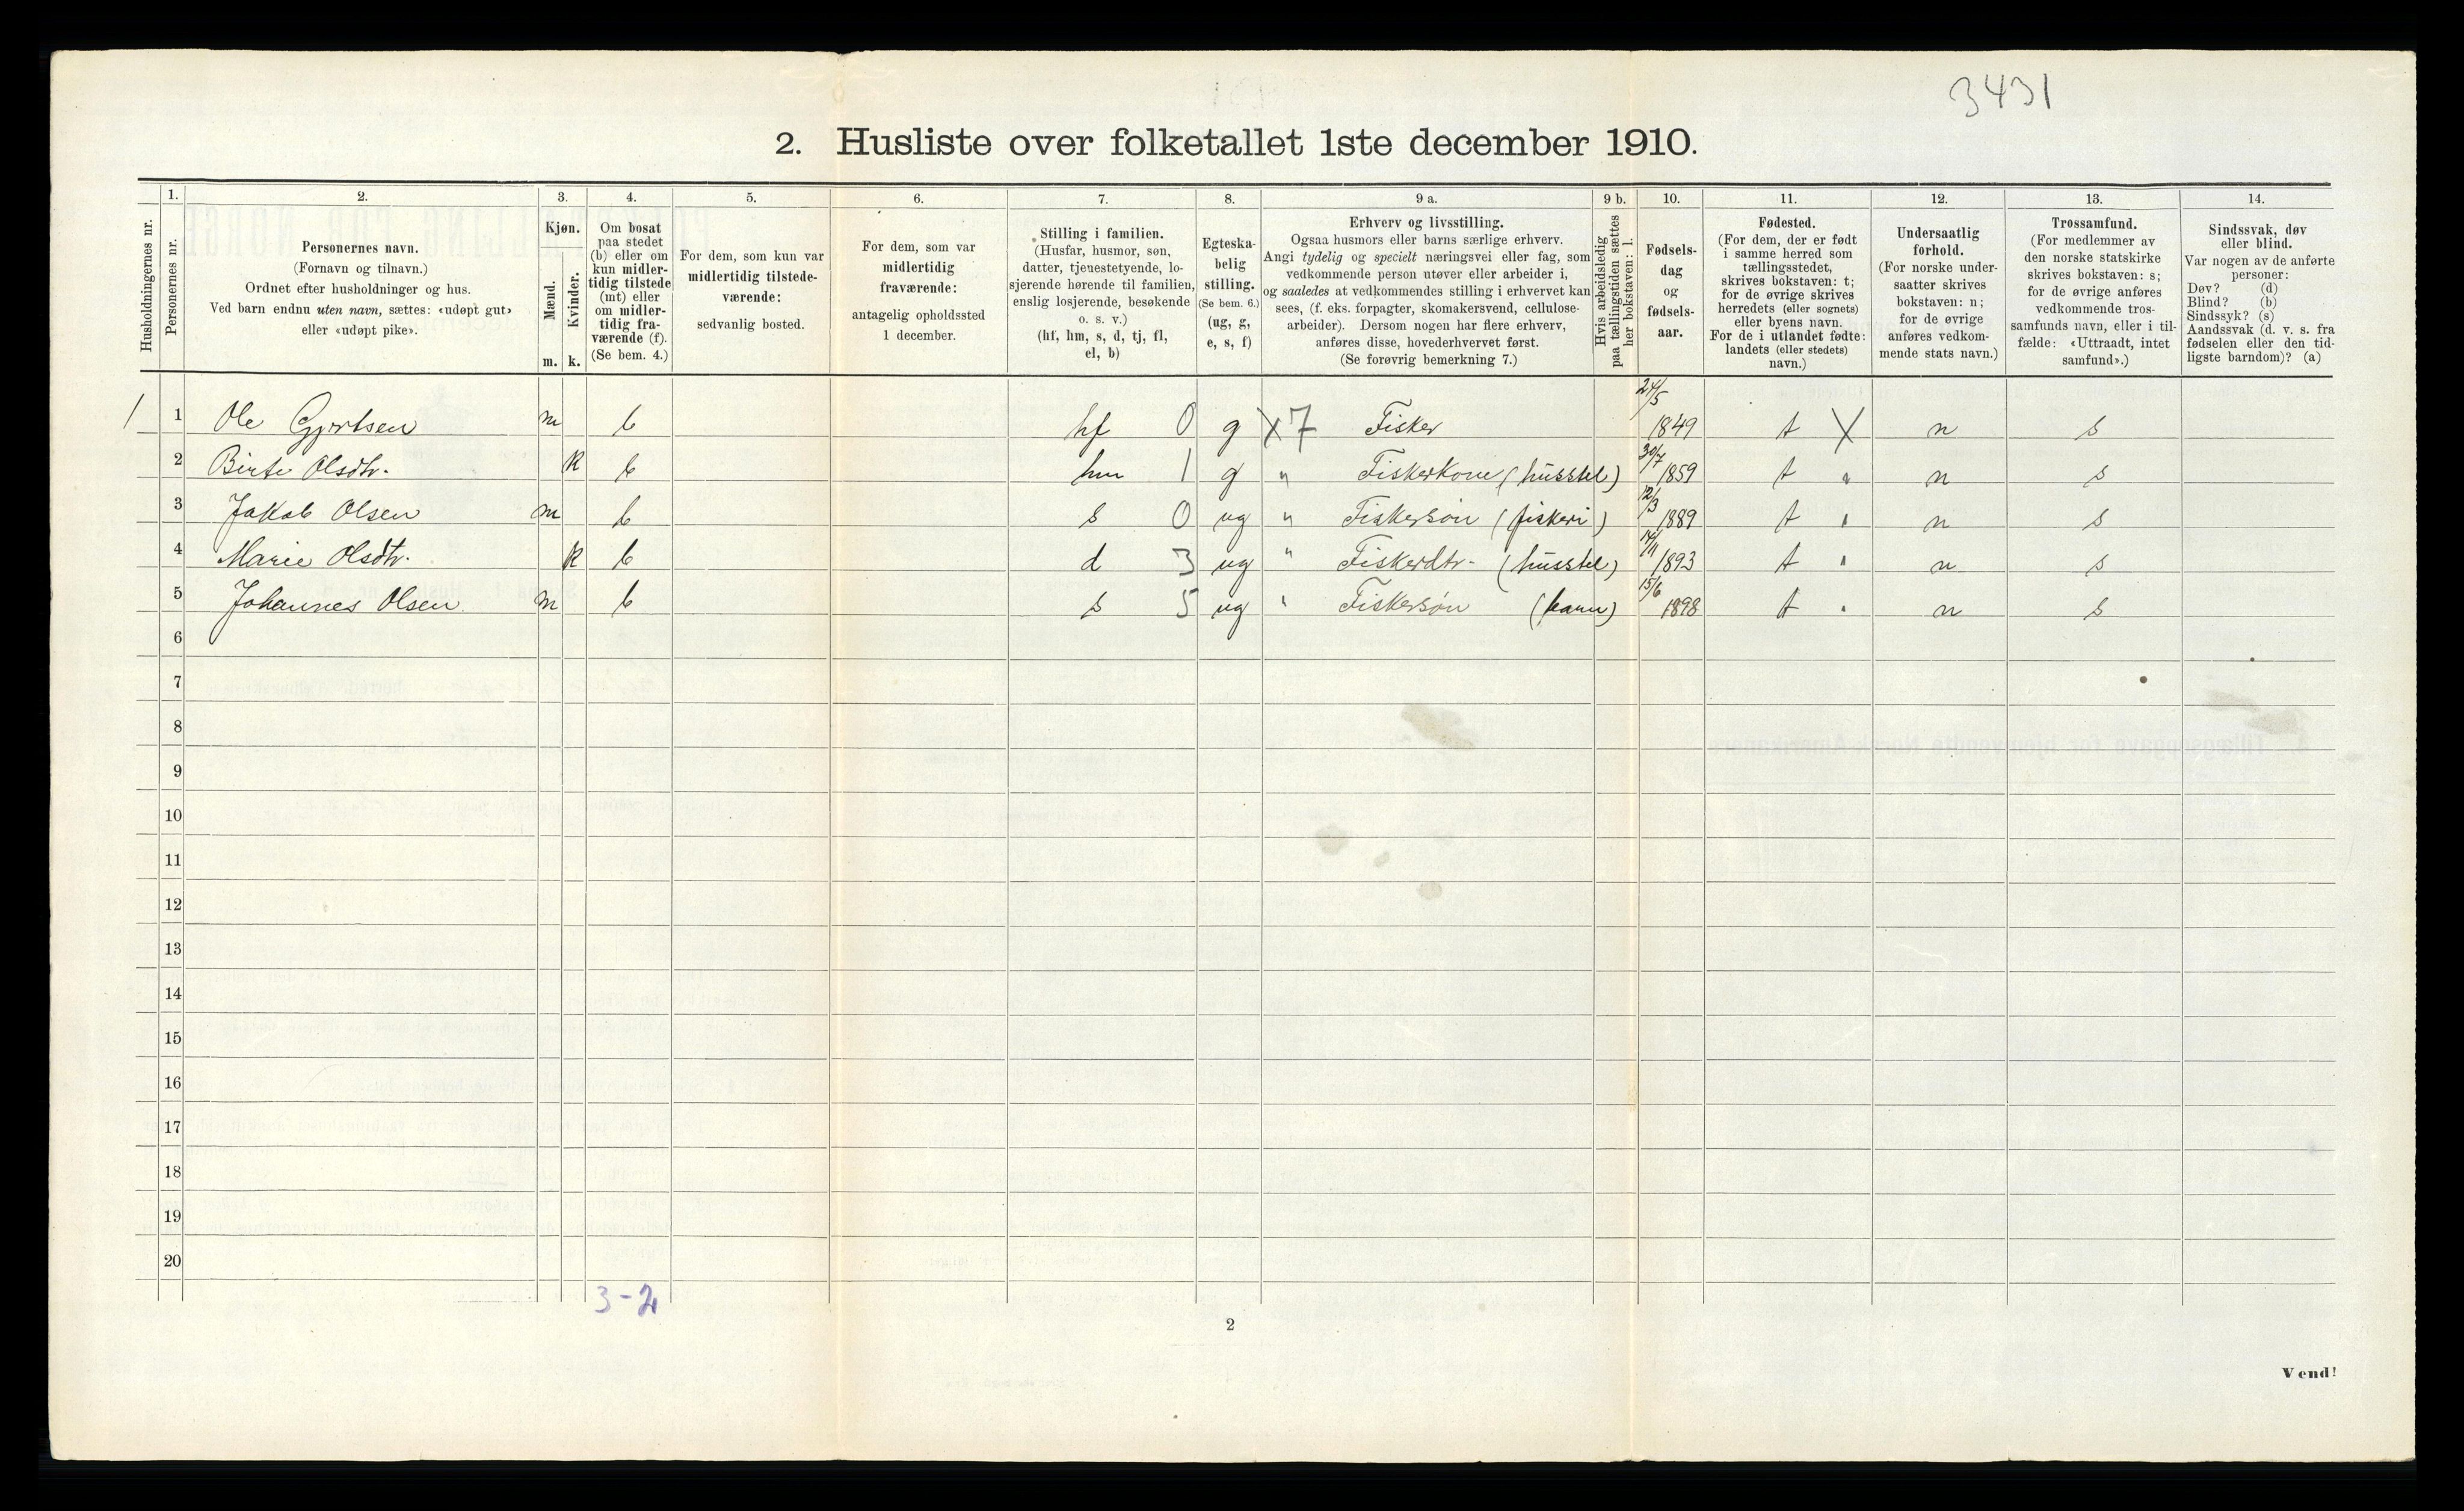 3431
2. Husliste over folketallet 1ste december 1910.
Husholdningernes nr.
1.
Personernes nr.
2.
Personernes navn.
(Fornavn og tilnavn.)
Ordnet efter husholdninger og hus.
Ved barn endnu uten navn, sættes: «udøpt gut»
eller «udøpt pike».
3.
Kjøn.
Mænd.
Kvinder.
m. k.
4.
Om bosat
paa stedet
(b) eller om
kun midler-
tidig tilstede
(mt) eller
om midler-
tidig fra-
værende (f).
(Se bem. 4.)
5.
For dem, som kun var
midlertidig tilstede-
værende:
sedvanlig bosted.
6.
For dem, som var
midlertidig
fraværende:
antagelig opholdssted
1 december.
7.
Stilling i familien.
(Husfar, husmor, søn,
datter, tjenestetyende, lo-
sjerende hørende til familien,
enslig losjerende, besøkende
o. s. v.)
(hf, hm, s, d, tj, fl,
el, b)
8.
Egteska-
belig
stilling.
(Se bem. 6.)
(ug, g,
e, s, f)
9 a.
Erhverv og livsstilling.
Ogsaa husmors eller barns særlige erhverv.
Angi tydelig og specielt næringsvei eller fag, som
vedkommende person utøver eller arbeider i,
og saaledes at vedkommendes stilling i erhvervet kan
sees, (f. eks. forpagter, skomakersvend, cellulose-
arbeider). Dersom nogen har flere erhverv,
anføres disse, hovederhvervet først.
(Se forøvrig bemerkning 7.)
9 b.
Hvis arbeidsledig
paa tællingstiden sættes
her bokstaven: l.
10.
Fødsels-
dag
og
fødsels-
aar.
11.
Fødested.
(For dem, der er født
i samme herred som
tællingsstedet,
skrives bokstaven: t;
for de øvrige skrives
herredets (eller sognets)
eller byens navn.
For de i utlandet fødte:
landets (eller stedets)
navn.)
12.
Undersaatlig
forhold.
(For norske under-
saatter skrives
bokstaven: n;
for de øvrige
anføres vedkom-
mende stats navn.)
13.
Trossamfund.
(For medlemmer av
den norske statskirke
skrives bokstaven: s;
for de øvrige anføres
vedkommende tros-
samfunds navn, eller i til-
fælde: «Uttraadt, intet
samfund».)
14.
Sindssvak, døv
eller blind.
Var nogen av de anførte
personer:
Døv? (d)
Blind? (b)
Sindssyk? (s)
Aandssvak (d. v. s. fra
fødselen eller den tid-
ligste barndom)? (a)
1 1 Ole Gjertsen m b hf 0 g X 7 Fisker 24/5 1849 t X n s
2 Birte Olsdtr. k b hm 1 g " Fiskerkone (husstel) 30/7 1859 t " n s
3 Jakob Olsen m b s 0 ug " Fiskersøn (fiskeri) 12/3 1889 t " n s
4 Marie Olsdtr. k b d 3 ug " Fiskerdtr. (husstel) 14/11 1893 t " n s
5 Johannes Olsen m b s 5 ug " Fiskersøn (barn) 15/6 1898 t " n s
6
7
8
9
10
11
12
13
14
15
16
17
18
19
20
3-2
2
Vend!